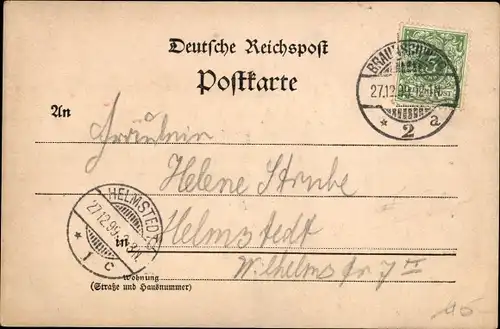 Deutsche Reichspost
Postkarte
BRAUNSCHWEIG
27.12.99. 12-1N.
* 2 a
An
Fräulein
Helene Strube
HELMSTEDT
27.12.99. 2-3N.
* 1 c
in Helmstedt
Wilhelmsstr. 7 II
Wohnung
(Straße und Hausnummer)